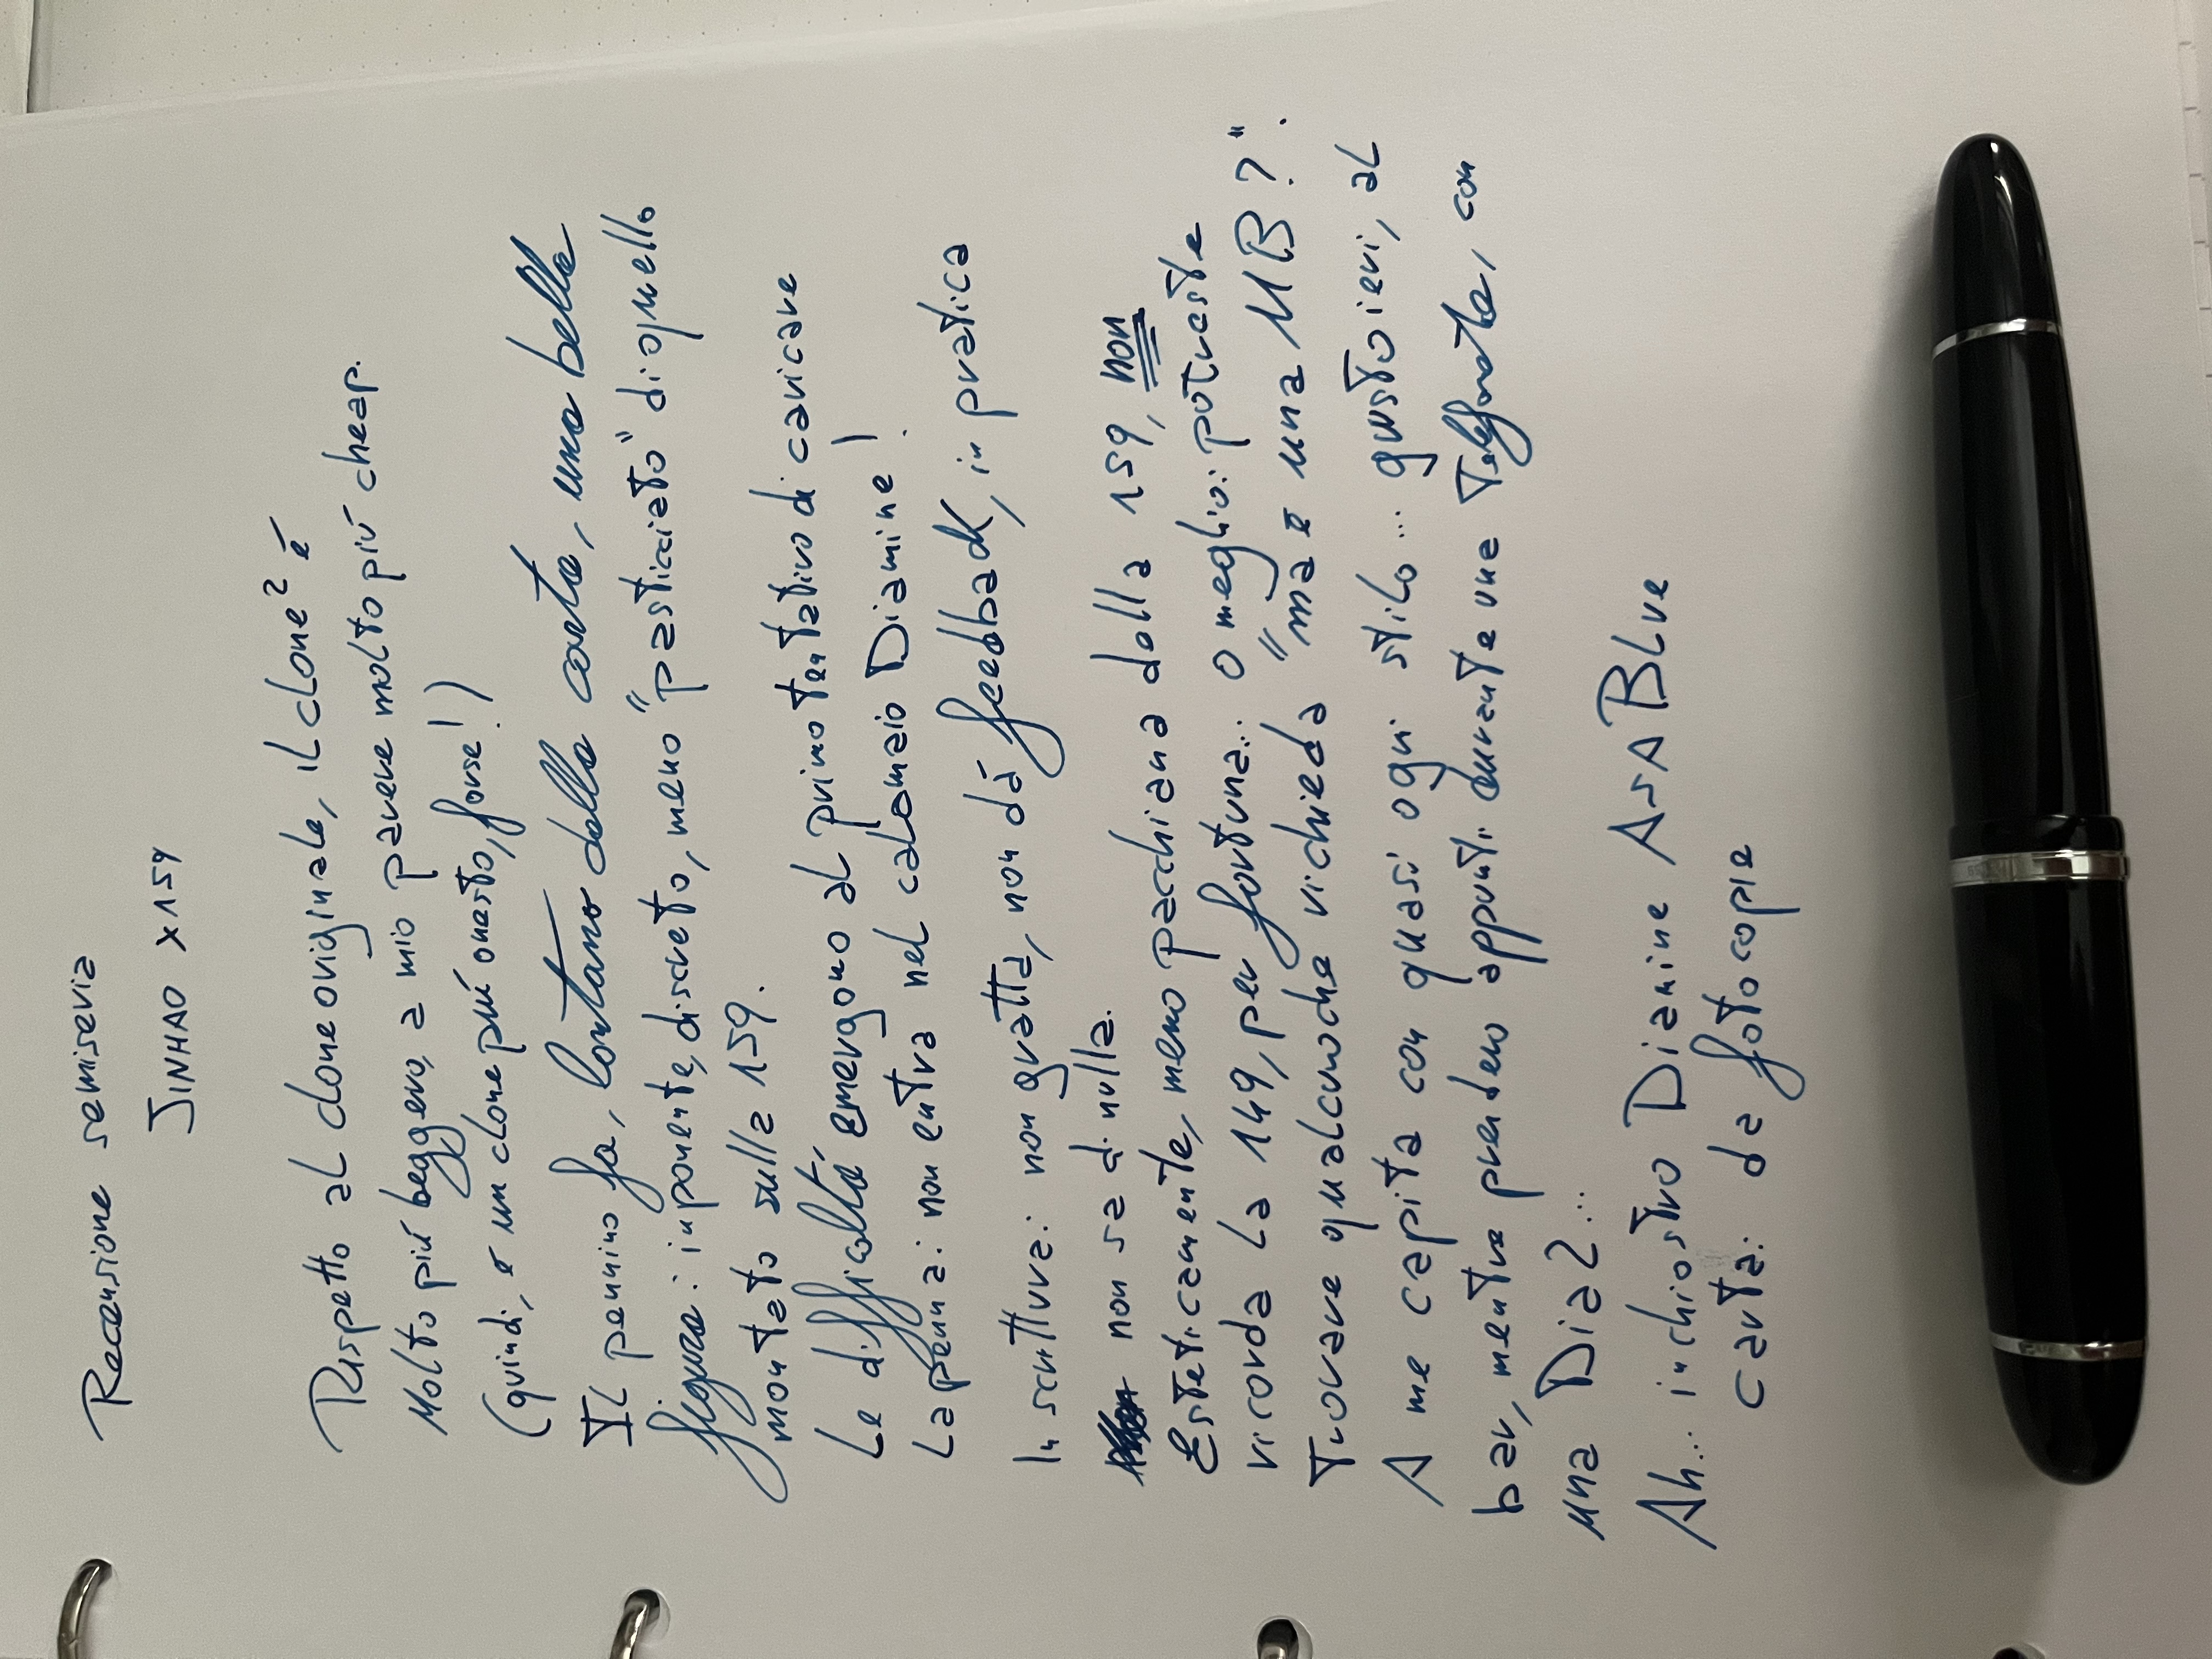 Recensione semiseria
JINHAO X159
Rispetto al clone originale, il clone² è
Molto più leggero, a mio parere molto più cheap.
(quindi, è un clone più onesto, forse!)
Il pennino fa, lontano dalla carta, una bella
figura: imponente, discreto, meno "pasticciato" di quello
montato sulla 159.
Le difficoltà emergono al primo tentativo di caricare
La penna: non entra nel calamaio Diamine!
In scrittura: non gratta, non dà feedback, in pratica
non sa di nulla.
Esteticamente, meno pacchiana della 159, non
ricorda la 149, per fortuna... o meglio: potreste
Trovare qualcuno che vi chieda "ma è una MB?".
A me capita con quasi ogni stilo... giusto ieri, al
bar, mentre prendevo appunti durante una telefonata, con
una Dia2...
Ah... inchiostro Diamine ASA BLue
carta: da fotocopie